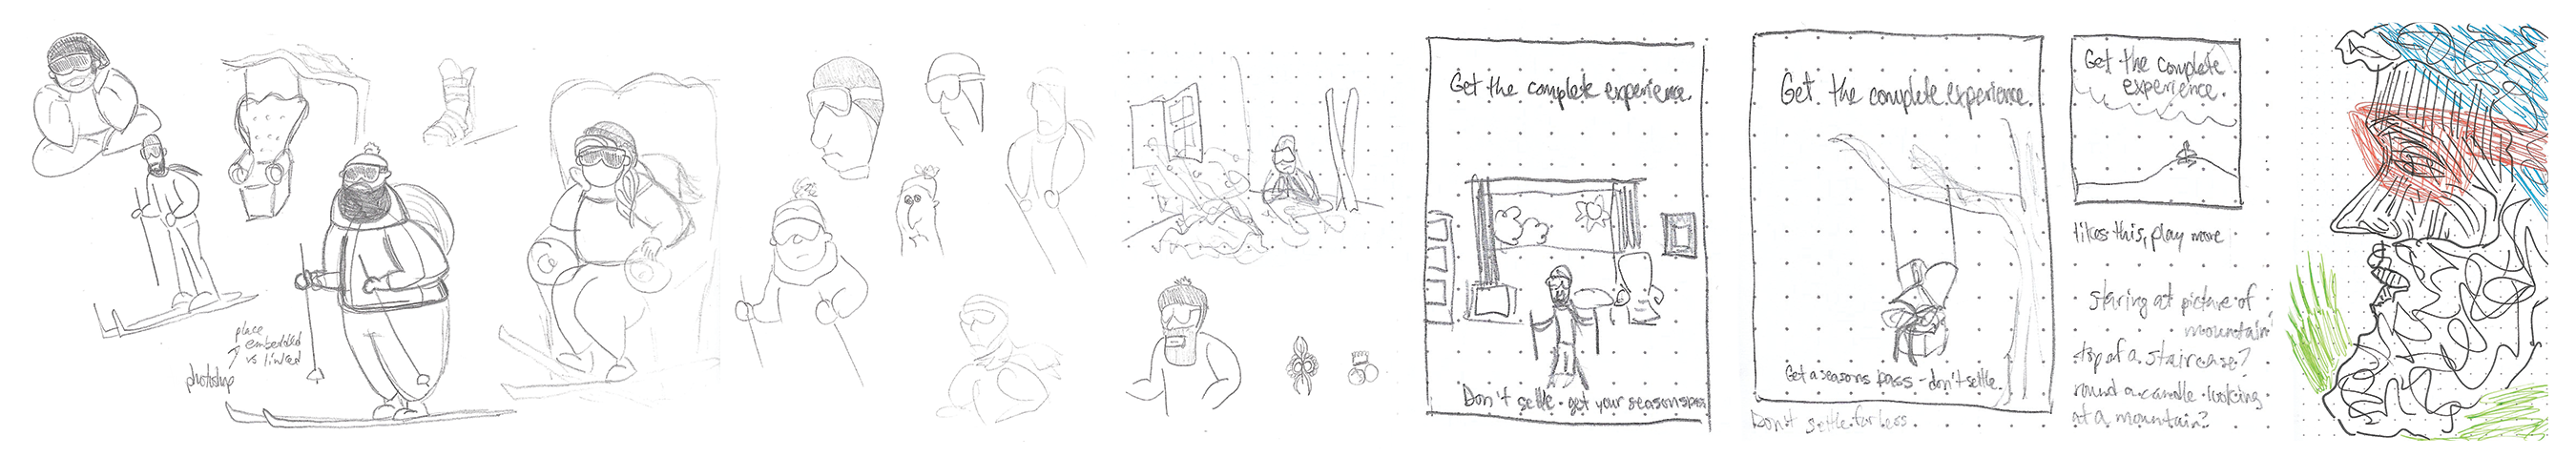 place
embedded
vs linked
photoshop
Get the complete experience.
Don't settle - get your seasons pass
Get the complete experience.
Get a seasons pass - don't settle.
Don't settle for less.
Get the complete
experience.
likes this, play more
staring at picture of
mountain
top of a staircase?
round a candle looking
at a mountain?